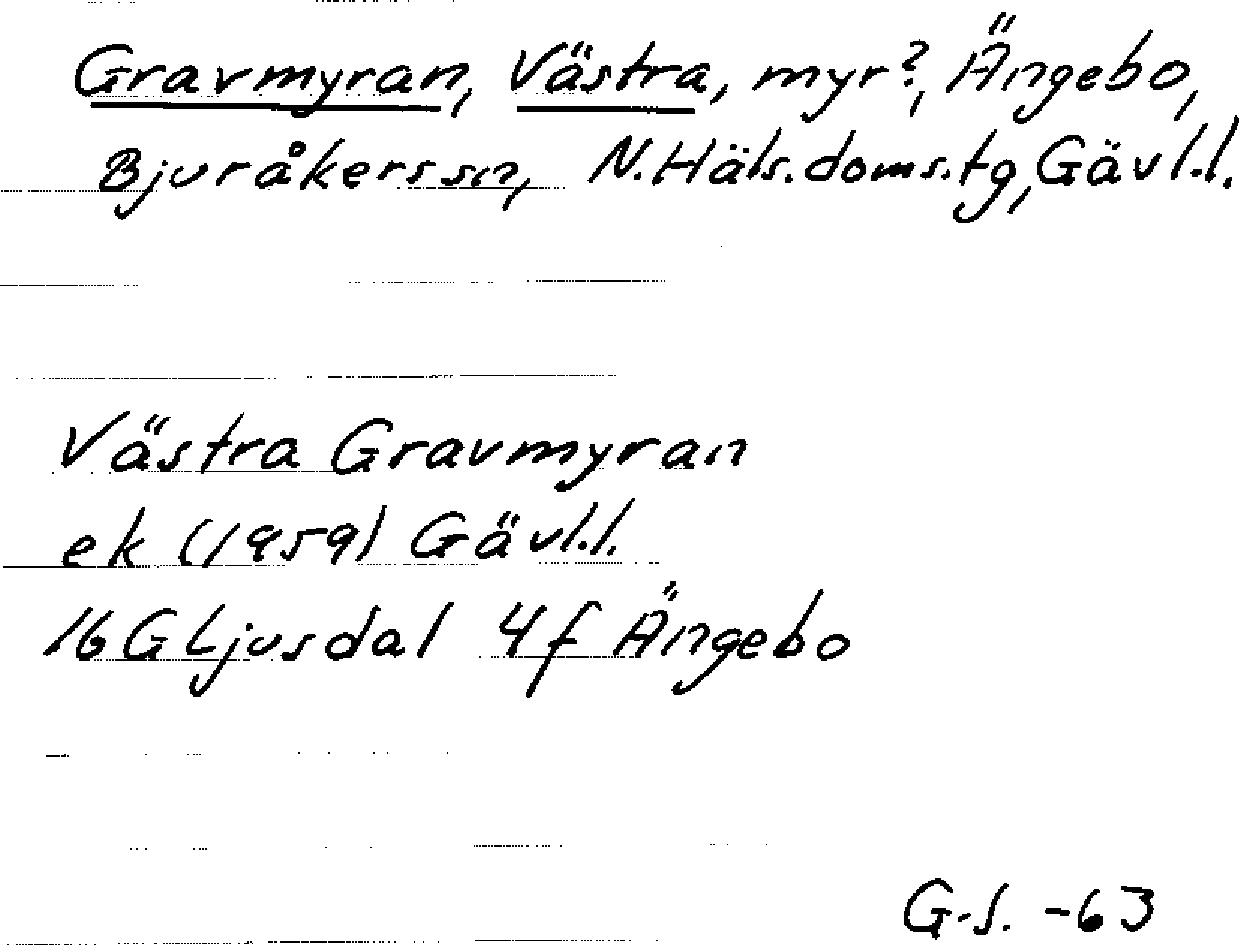 Gravmyran, Västra, myr?, Ängebo,
Bjuråkers sn, N.Häls.doms.tg, Gävl.l.
Västra Gravmyran
ek (1959) Gävl.l.
16G Ljusdal 4f Ängebo
G.S. -63